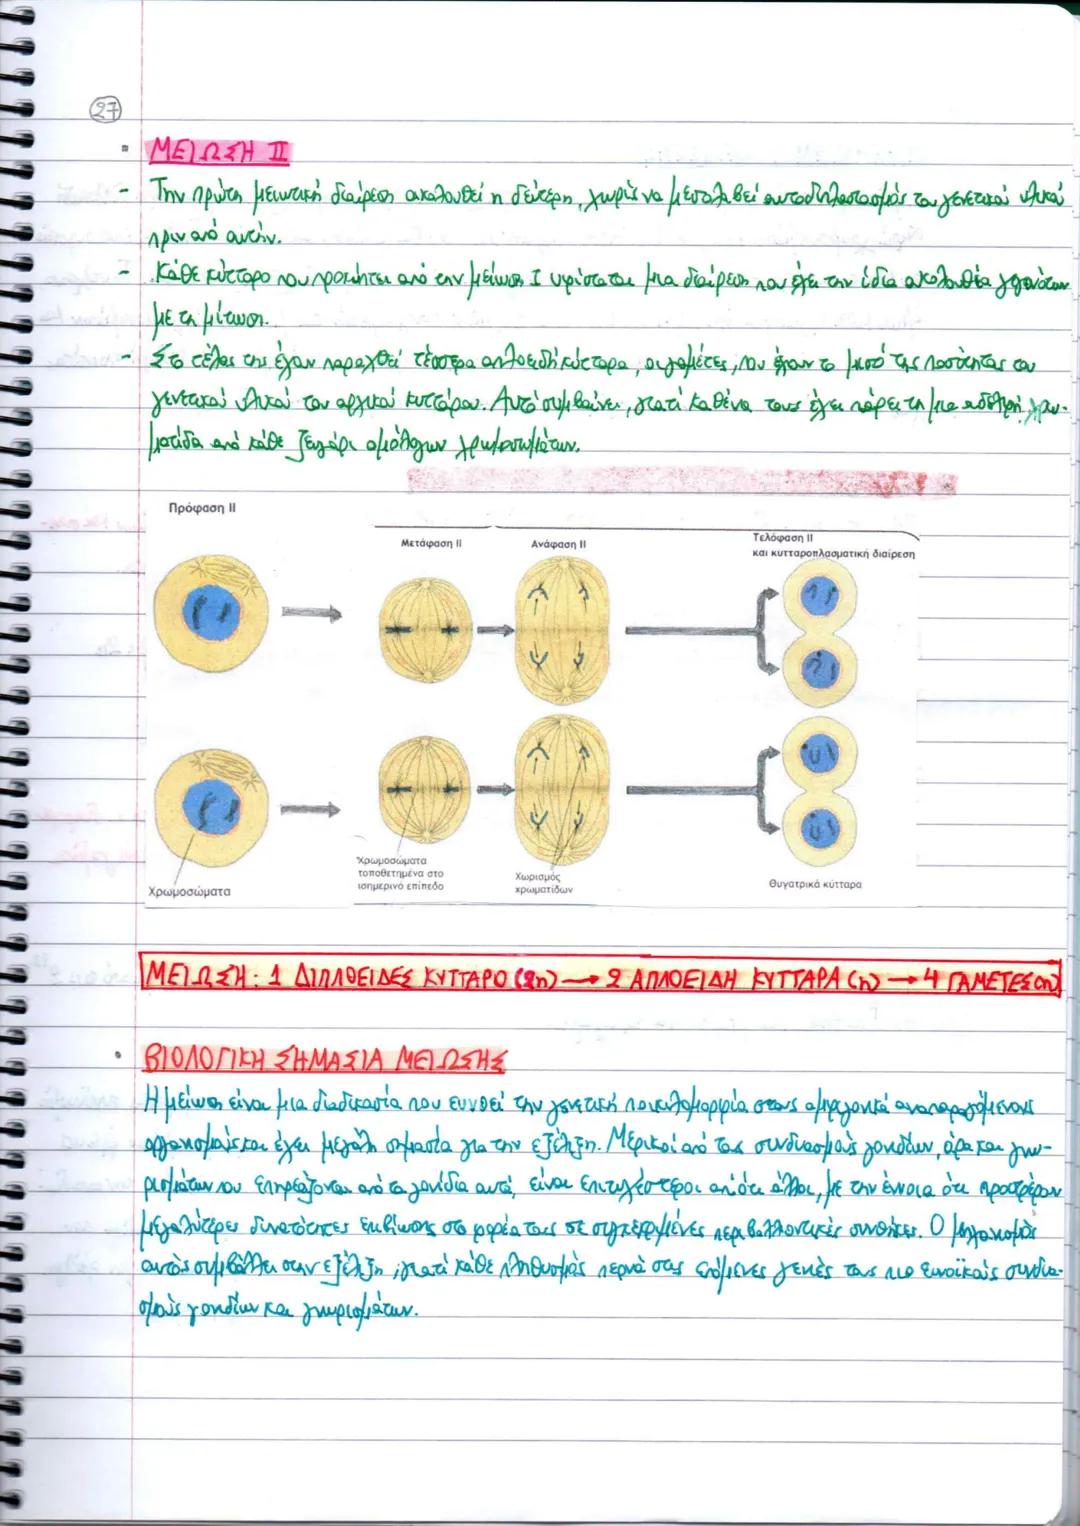 27
ΜΕΙΩΣΗ II
- Την πρώτη μειωτική διαίρεση ακολουθεί η δεύτερη, χωρίς να μεσολαβεί αυτοδιπλασιασμός του γενετικού υλικού
πριν από αυτήν.
- Κάθε κύτταρο που προκύπτει από την μείωση I υφίσταται μια διαίρεση που έχει την ίδια ακολουθία γεγονότων
με τη μίτωση.
- Στο τέλος της έχουν παραχθεί τέσσερα απλοειδή κύτταρα, οι γαμέτες, που έχουν το μισό της ποσότητας του
γενετικού υλικού του αρχικού κυττάρου. Αυτό συμβαίνει, γιατί καθένα τους έχει πάρει τη μια αδελφή χρω-
ματίδα από κάθε ζευγάρι ομόλογων χρωμοσωμάτων.
Πρόφαση II
Μετάφαση II
Ανάφαση II
Τελόφαση II
και κυτταροπλασματική διαίρεση
Χρωμοσώματα
Χρωμοσώματα
τοποθετημένα στο
ισημερινό επίπεδο
Χωρισμός
χρωματίδων
Θυγατρικά κύτταρα
ΜΕΙΩΣΗ: 1 ΔΙΠΛΟΕΙΔΕΣ ΚΥΤΤΑΡΟ (2n) → 2 ΑΠΛΟΕΙΔΗ ΚΥΤΤΑΡΑ (n) → 4 ΓΑΜΕΤΕΣ (n)
ΒΙΟΛΟΓΙΚΗ ΣΗΜΑΣΙΑ ΜΕΙΩΣΗΣ
Η μείωση είναι μια διαδικασία που ευνοεί την γενετική ποικιλομορφία στους αμφιγονικά αναπαραγόμενους
οργανισμούς και έχει μεγάλη σημασία για την εξέλιξη. Μερικοί από τους συνδυασμούς γονιδίων, άρα και γνω-
ρισμάτων που επηρεάζονται από τα γονίδια αυτά, είναι επιτυχέστεροι απ' ότι άλλοι, με την έννοια ότι προσφέρουν
μεγαλύτερες δυνατότητες επιβίωσης στο φορέα τους σε συγκεκριμένες περιβαλλοντικές συνθήκες. Ο μηχανισμός
αυτός συμβάλλει στην εξέλιξη, γιατί κάθε πληθυσμός περνά στις επόμενες γενιές τους πιο ευνοϊκούς συνδυα-
σμούς γονιδίων και γνωρισμάτων.